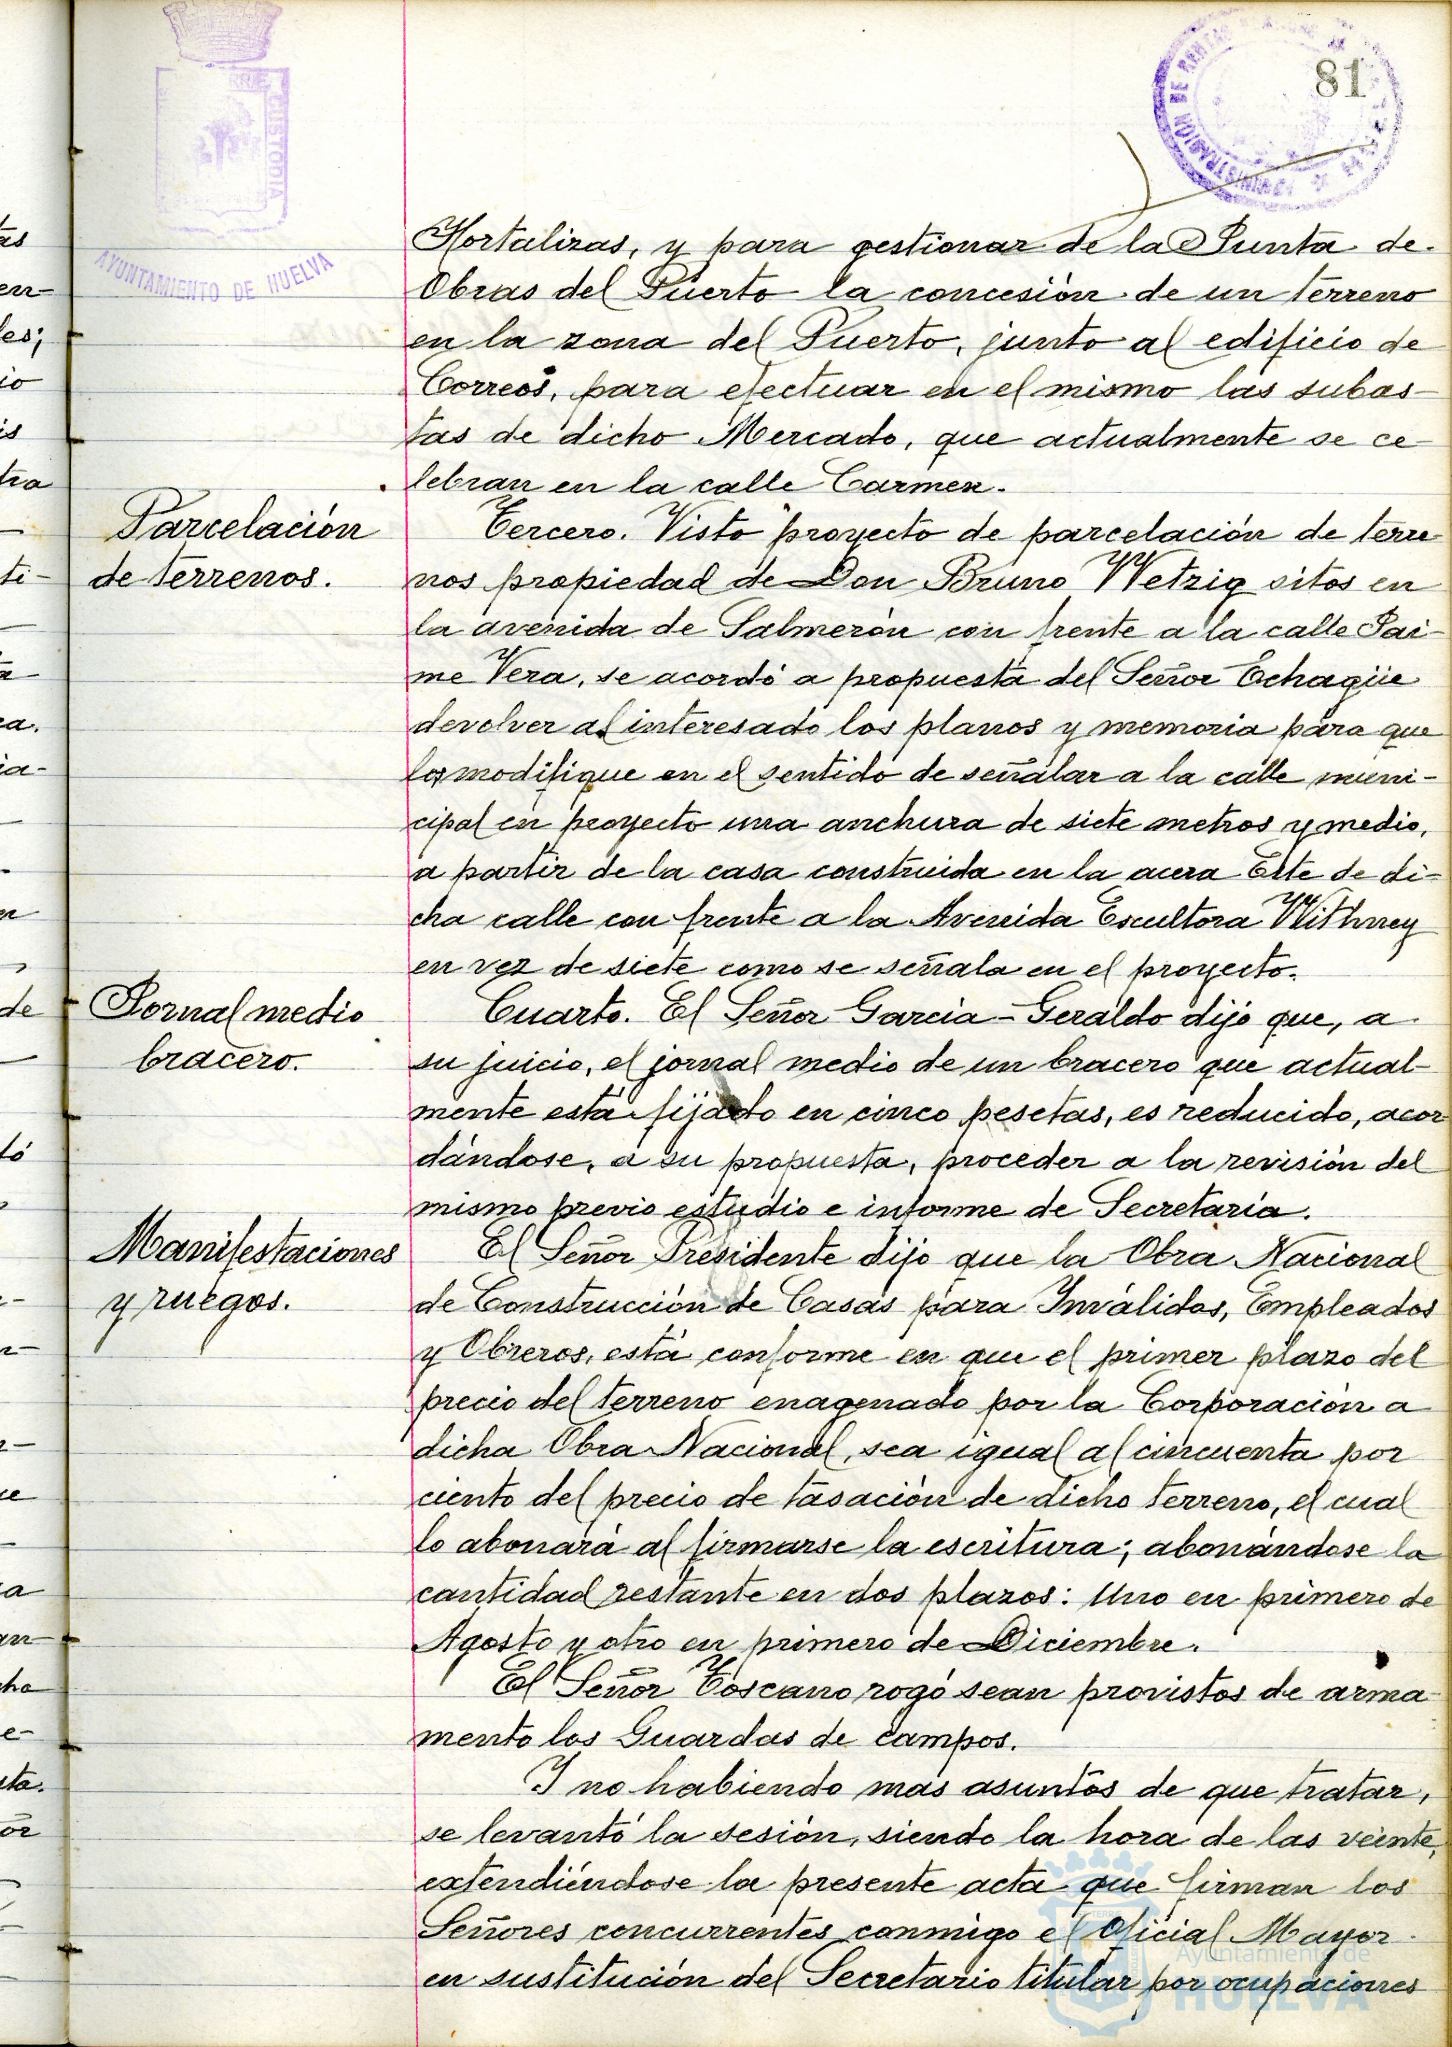 81
AYUNTAMIENTO DE HUELVA
Hortalizas, y para gestionar de la Junta de
Obras del Puerto la concesión de un terreno
en la zona del Puerto, junto al edificio de
Correos, para efectuar en el mismo las subas-
tas de dicho Mercado, que actualmente se ce-
lebran en la calle Carmen.
Parcelación
de terrenos.
Tercero. Visto proyecto de parcelación de terre-
nos propiedad de Don Bruno Wetzig sitos en
la avenida de Salmerón con frente a la calle Jai-
me Vera, se acordó a propuesta del Señor Echagüe
devolver al interesado los planos y memoria para que
los modifique en el sentido de señalar a la calle muni-
cipal en proyecto una anchura de siete metros y medio,
a partir de la casa construida en la acera Este de di-
cha calle con frente a la Avenida Escultora Withney
en vez de siete como se señala en el proyecto.
Jornal medio
bracero.
Cuarto. El Señor García-Geraldo dijo que, a
su juicio, el jornal medio de un bracero que actual-
mente está fijado en cinco pesetas, es reducido, acor-
dándose, a su propuesta, proceder a la revisión del
mismo previo estudio e informe de Secretaría.
Manifestaciones
y ruegos.
El Señor Presidente dijo que la Obra Nacional
de Construcción de Casas para Inválidos, Empleados
y Obreros, está conforme en que el primer plazo del
precio del terreno enagenado por la Corporación a
dicha Obra Nacional, sea igual al cincuenta por
ciento del precio de tasación de dicho terreno, el cual
lo abonará al firmarse la escritura; abonándose la
cantidad restante en dos plazos: Uno en primero de
Agosto y otro en primero de Diciembre.
El Señor Toscano rogó sean provistos de arma-
mento los Guardas de campos.
Y no habiendo más asuntos de que tratar,
se levantó la sesión, siendo la hora de las veinte,
extendiéndose la presente acta que firman los
Señores concurrentes conmigo el Oficial Mayor
en sustitución del Secretario titular por ocupaciones
Ayuntamiento de
HUELVA